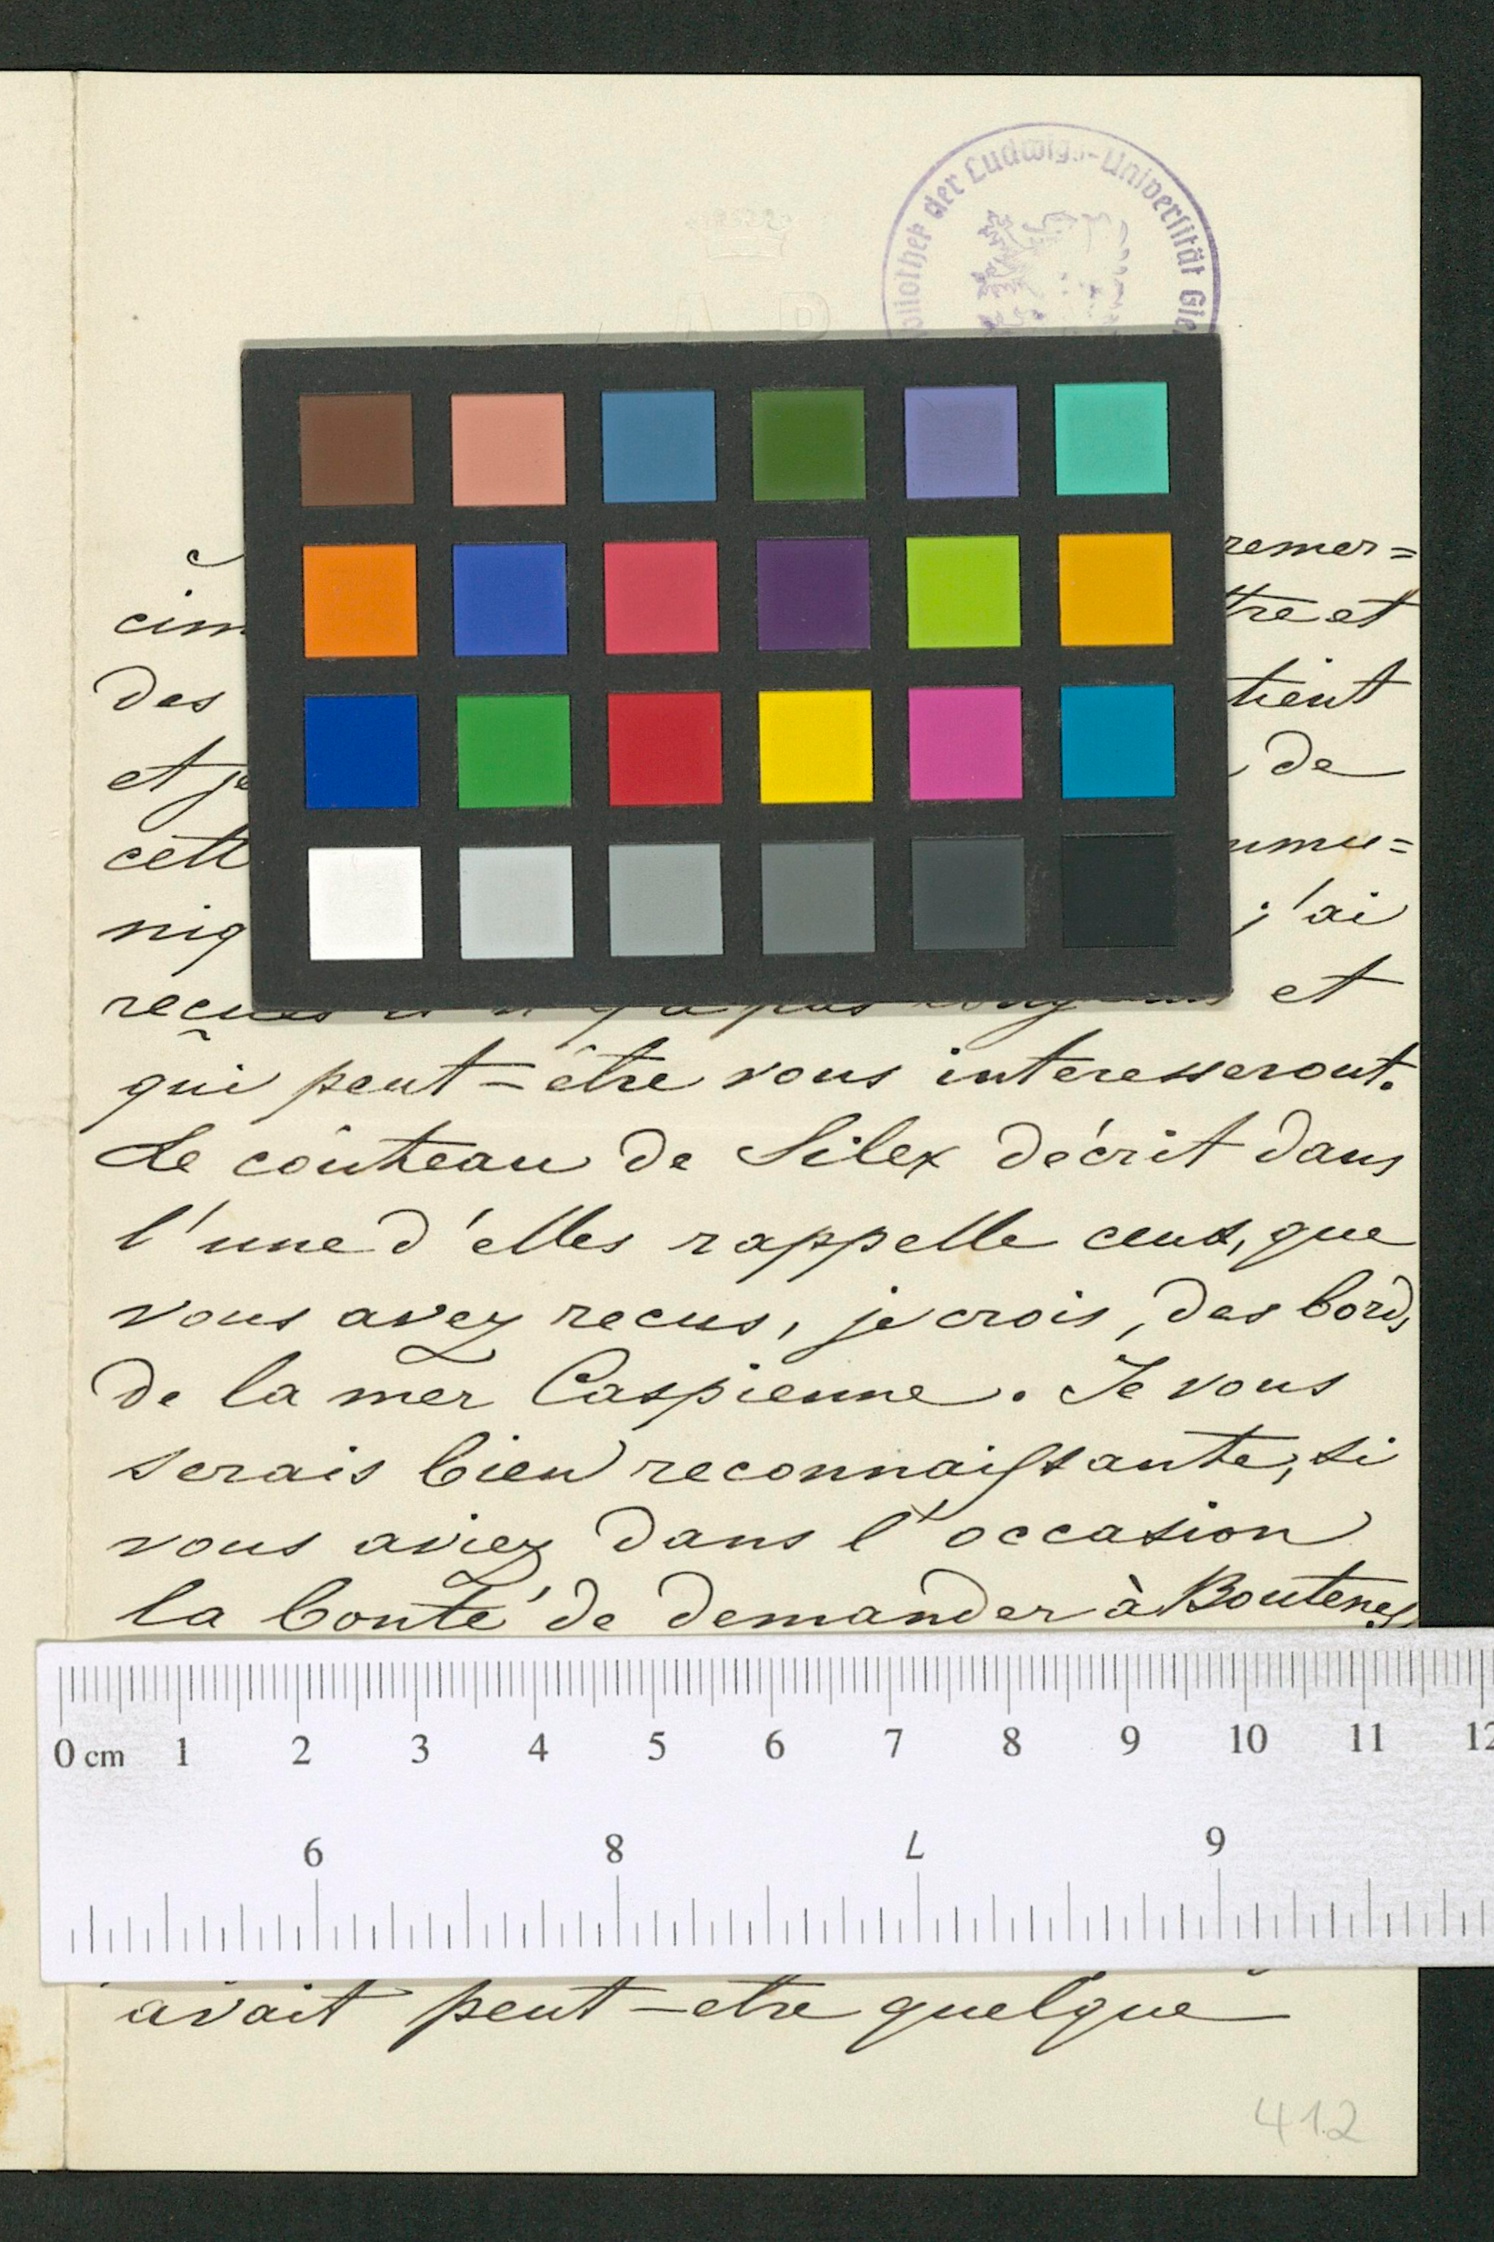 Bibliothek der Ludwigs-Universität Gie
remer=
tre et
des tient
et je de
cett umu=
niq j'ai
reçues et
qui peut-être vous interesseront.
Le coûteau de Silex décrit dans
l'une d'elles rappelle ceux, que
vous avez recus, je crois, des bords
de la mer Caspienne. Je vous
serais bien reconnaissante, si
vous aviez dans l'occasion
la bonté de demander à Boutenef
0 cm 1 2 3 4 5 6 7 8 9 10 11 12
6 8 7 9
avait peut-etre quelque
412